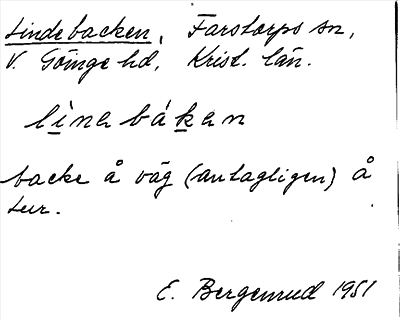 Lindebacken, Farstorps sn,
V. Göinge hd, Krist. län.
línα bákαn
backe å väg (antagligen) å
tur.
E. Bergenrud 1951